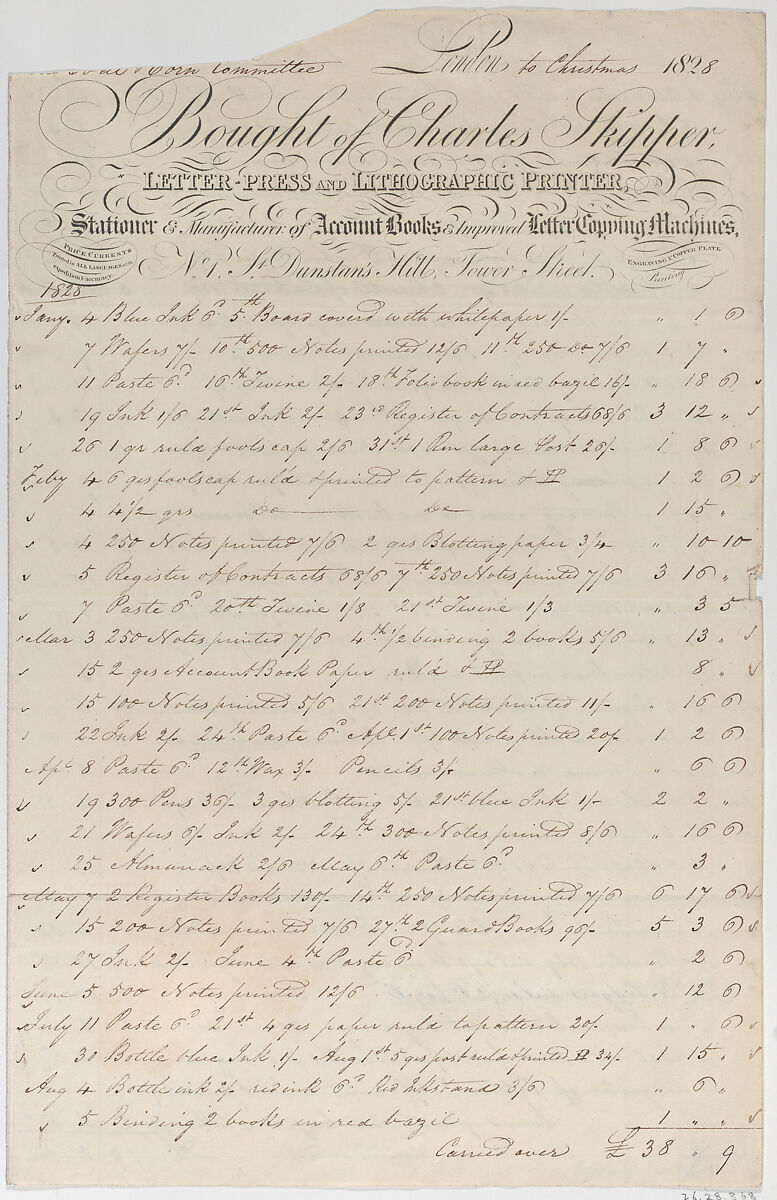 Coal & Corn Committee London to Christmas 1828
Bought of Charles Skipper,
LETTER-PRESS AND LITHOGRAPHIC PRINTER,
Stationer & Manufacturer of Account Books & Improved Letter Copying Machines,
PRICE CURRENTS
Printed in ALL LANGUAGES with
expedition & accuracy.
No. 1, St. Dunstan's Hill, Tower Street.
ENGRAVING & COPPER PLATE
Printing
1828
Jany. 4 Blue Ink 6d 5th Board coverd with white paper 1/- " 1 6
7 Wafers 7/- 10th 500 Notes printed 12/6 11th 250 Do 7/6 1 7 "
11 Paste 6d 16th Twine 2/- 18th Folio book in red bazil 16/- " 18 6
19 Ink 1/6 21st Ink 2/- 23rd Register of Contracts 68/6 3 12 "
26 1 qr ruld foolscap 2/6 31st 1 Rm large Post 26/- 1 8 6
Feby 4 6 qrs foolscap ruld & printed to pattern & 1 2 6
4 4 1/2 qrs Do Do 1 15 "
4 250 Notes printed 7/6 2 qrs Blotting paper 3/4 " 10 10
5 Register of Contracts 68/6 7th 250 Notes printed 7/6 3 16 "
7 Paste 6d 20th Twine 1/8 21st Twine 1/3 " 3 5
Mar 3 250 Notes printed 7/6 4th 1/2 binding 2 books 5/6 " 13 "
15 2 qrs Account Book Paper ruld & 8 "
15 100 Notes printed 5/6 21st 200 Notes printed 11/- " 16 6
22 Ink 2/- 24th Paste 6d Apl. 1st 100 Notes printed 20/- 1 2 6
Apl. 8 Paste 6d 12th Wax 3/- Pencils 3/- " 6 6
19 300 Pens 36/- 3 qrs blotting 5/- 21st blue Ink 1/- 2 2 "
21 Wafers 6/- Ink 2/- 24th 300 Notes printed 8/6 " 16 6
25 Almanack 2/6 May 6th Paste 6d " 3 "
May 7 2 Register Books 130/- 14th 250 Notes printed 7/6 6 17 6
15 200 Notes printed 7/6 27th 2 Guard Books 96/- 5 3 6
27 Ink 2/- June 4th Paste 6d " 2 6
June 5 500 Notes printed 12/6 " 12 6
July 11 Paste 6d 21st 4 qrs paper ruld to pattern 20/- 1 " 6
30 Bottle blue Ink 1/- Aug 1st 5 qrs post ruld & printed 34/- 1 15 "
Aug 4 Bottle ink 2/- red ink 6d Red Inkstand 3/6 " 6 "
5 Binding 2 books in red bazil 1 " "
Carried over £ 38 " 9
26.28.368